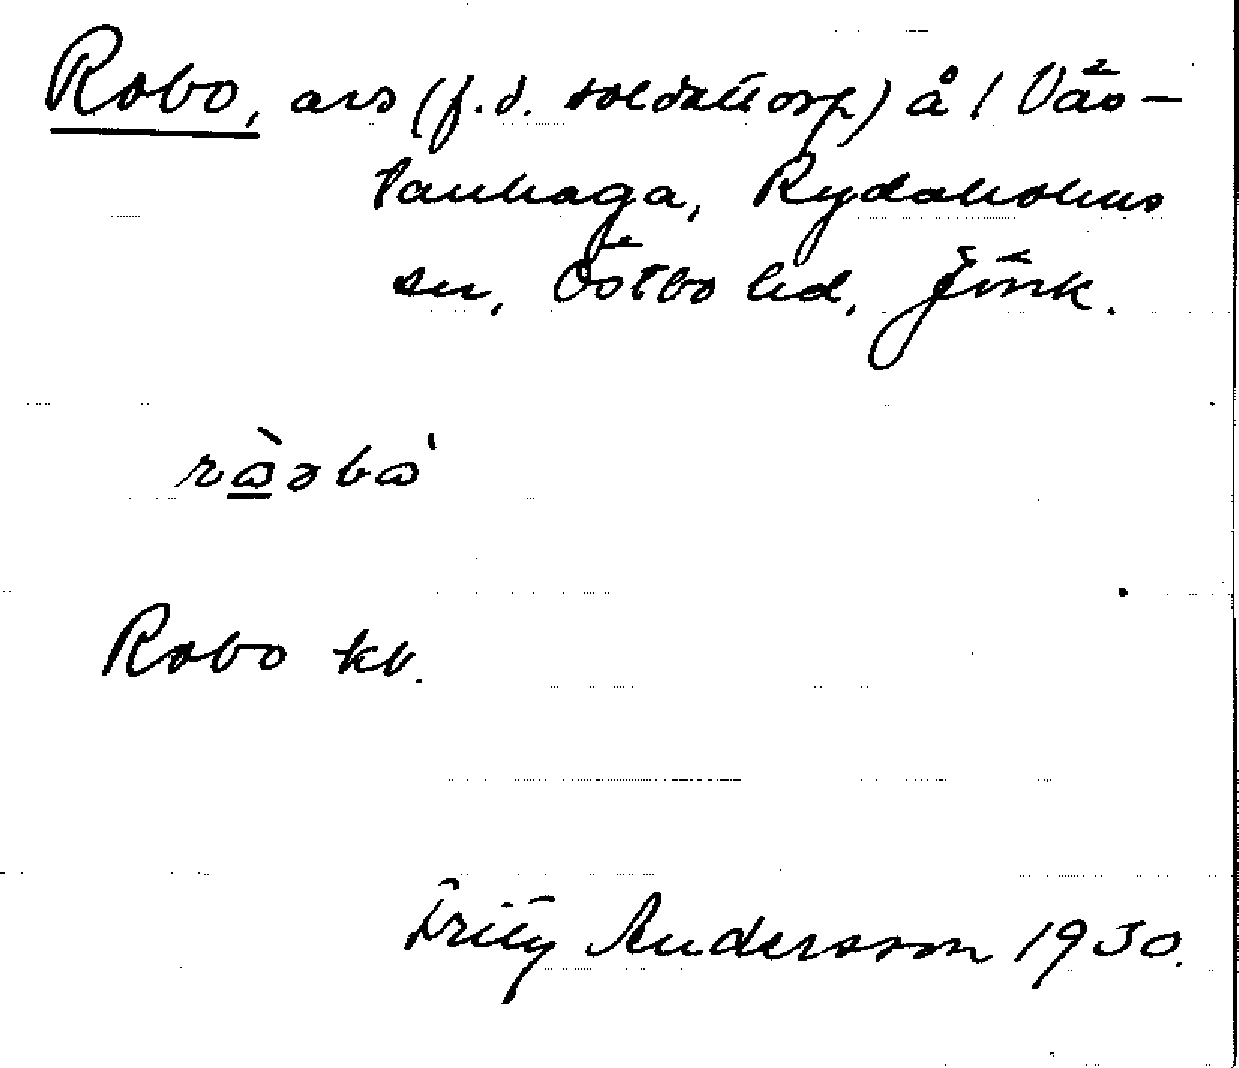 Robo, avs (f.d. soldattorp) å 1 Väs-
tanhaga, Rydaholms
sn, Östbo hd, Jönk.
ràəbɷ'
Robo kb.
Fritz Andersson 1930.